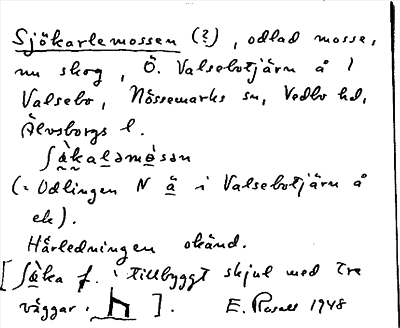 Sjökarlemossen (?), odlad mosse,
nu skog, Ö. Valsebotjärn å 1
Valsebo, Nössemarks sn, Vedbo hd,
Älvsborgs l.
ʃàkaləmòsən
(= Odlingen N ä i Valsebotjärn å
ek).
Härledningen okänd.
[ʃàka f. 'tillbyggt skjul med tre
väggar. ].  E. 1948